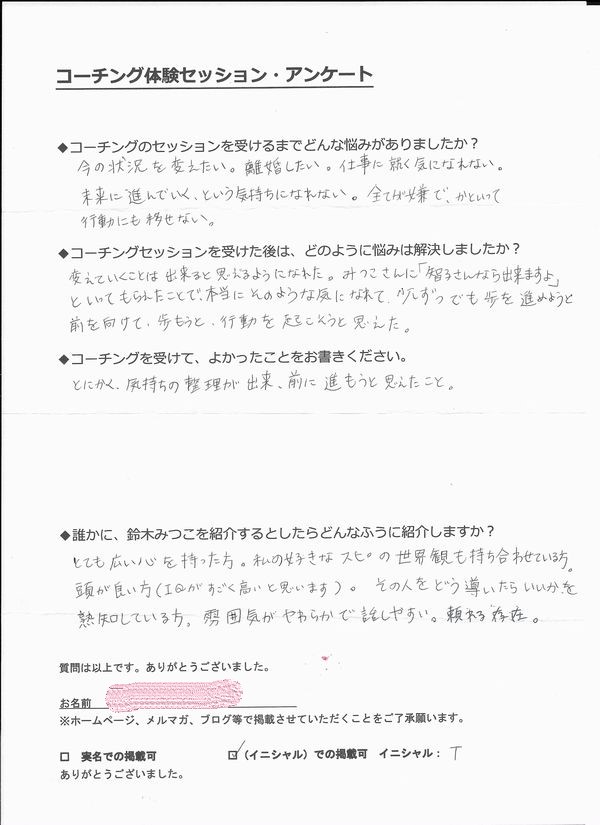 コーチング体験セッション・アンケート
◆コーチングのセッションを受けるまでどんな悩みがありましたか？
今の状況を変えたい。離婚したい。仕事に就く気になれない。
未来に進んでいく、という気持ちになれない。全てが嫌で、かといって
行動にも移せない。
◆コーチングセッションを受けた後は、どのように悩みは解決しましたか？
変えていくことは出来ると思えるようになれた。みつこさんに「智子さんなら出来ますよ」
といってもらえたことで本当にそのような気になれて、少しずつでも歩を進めようと
前を向けて、歩もうと、行動を起こそうと思えた。
◆コーチングを受けて、よかったことをお書きください。
とにかく、気持ちの整理が出来、前に進もうと思えたこと。
◆誰かに、鈴木みつこを紹介するとしたらどんなふうに紹介しますか？
とても広い心を持った方。私の好きなスピの世界観も持ち合わせている方。
頭が良い方(IQがすごく高いと思います)。その人をどう導いたらいいかを
熟知している方。雰囲気がやわらかで話しやすい。頼れる存在。
質問は以上です。ありがとうございました。
お名前
※ホームページ、メルマガ、ブログ等で掲載させていただくことをご了承願います。
□ 実名での掲載可 ☑（イニシャル）での掲載可 イニシャル： T
ありがとうございました。